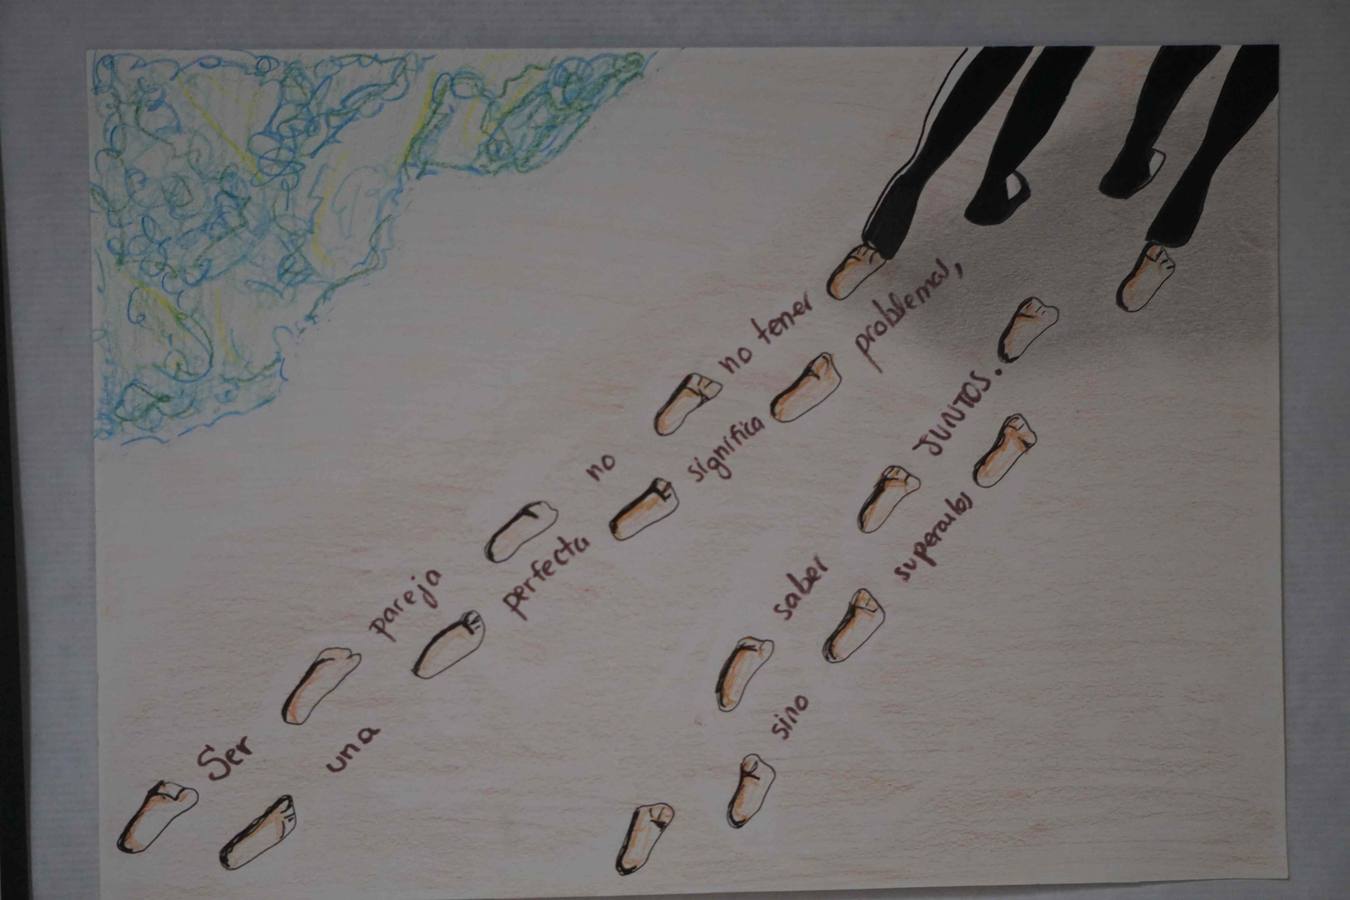 Ser
una
pareja
perfecta
no
significa
no tener
problemas,
sino
saber
superarlos
JUNTOS.